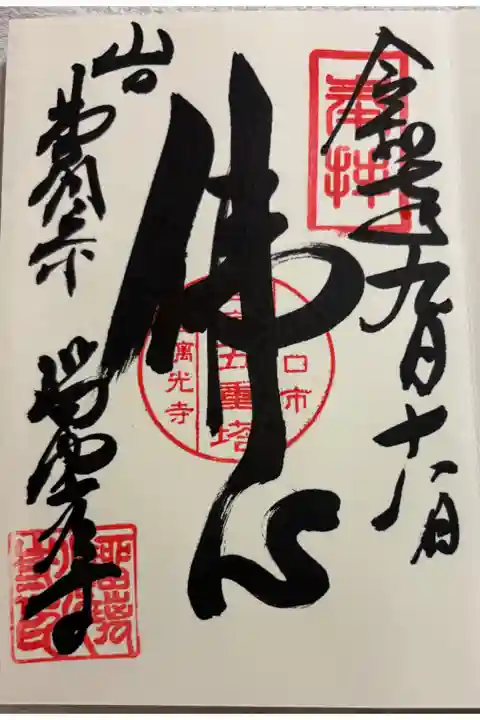 奉拝
令和元年九月十八日
佛心
口市
五重塔
璃光寺
山口
曹洞宗
瑠璃光寺